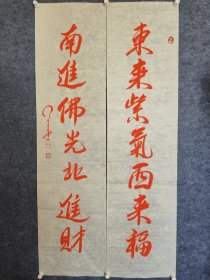 東来紫氣西来福
南進佛光北進財